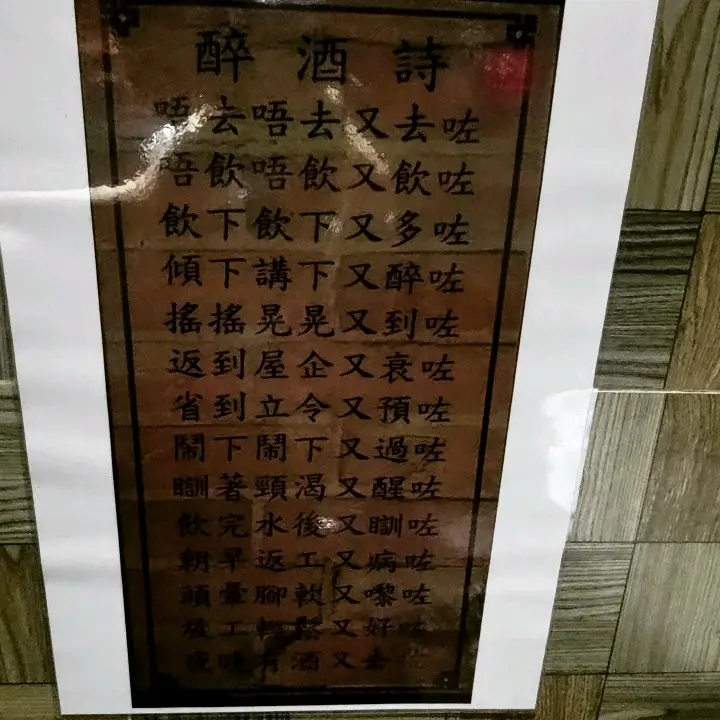 醉酒詩
唔去唔去又去咗
唔飲唔飲又飲咗
飲下飲下又多咗
傾下講下又醉咗
搖搖晃晃又到咗
返到屋企又衰咗
省到立令又預咗
鬧下鬧下又過咗
瞓著頸渴又醒咗
飲完水後又瞓咗
朝早返工又病咗
頭暈腳軟又嚟咗
放工輕鬆又好咗
夜晚有酒又去